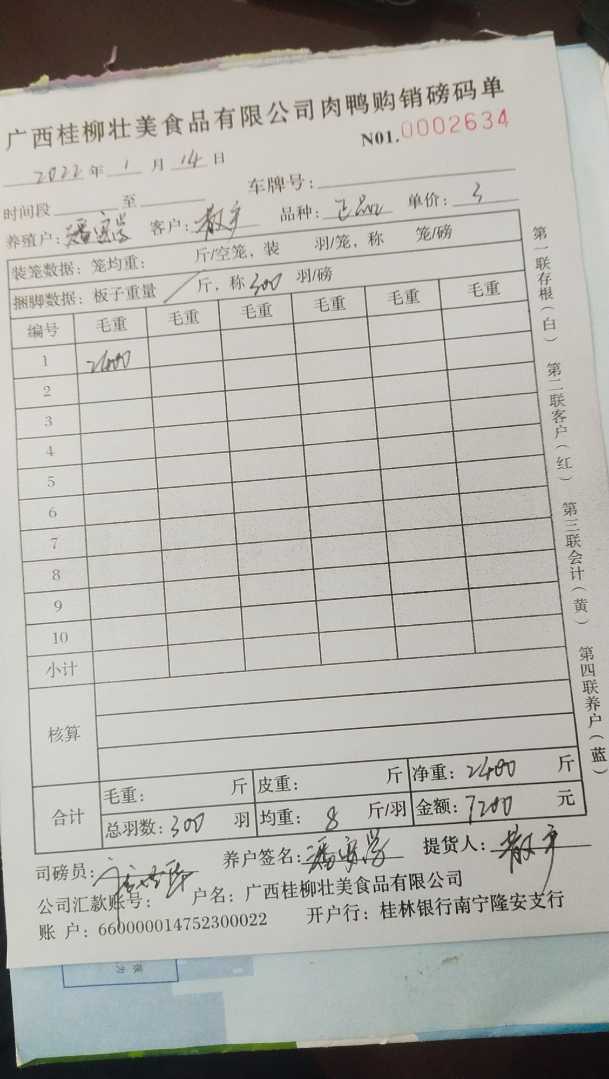 广西桂柳壮美食品有限公司肉鸭购销磅码单
N01.0002634
2022年 1 月 14 日
车牌号：
时间段 至
养殖户： 客户：散户 品种：正品 单价：3
装笼数据：笼均重： 斤/空笼，装 羽/笼，称 笼/磅
捆脚数据：板子重量 / 斤，称 300 羽/磅
编号 毛重 毛重 毛重 毛重 毛重 毛重
1 2400
2
3
4
5
6
7
8
9
10
小计
核算
合计 毛重： 斤 皮重： 斤 净重：2400 斤
总羽数：300 羽 均重：8 斤/羽 金额：7200 元
司磅员： 养户签名： 提货人：散户
公司汇款账号： 户名：广西桂柳壮美食品有限公司
账 户：660000014752300022 开户行：桂林银行南宁隆安支行
第一联存根（白） 第二联客户（红） 第三联会计（黄） 第四联养户（蓝）